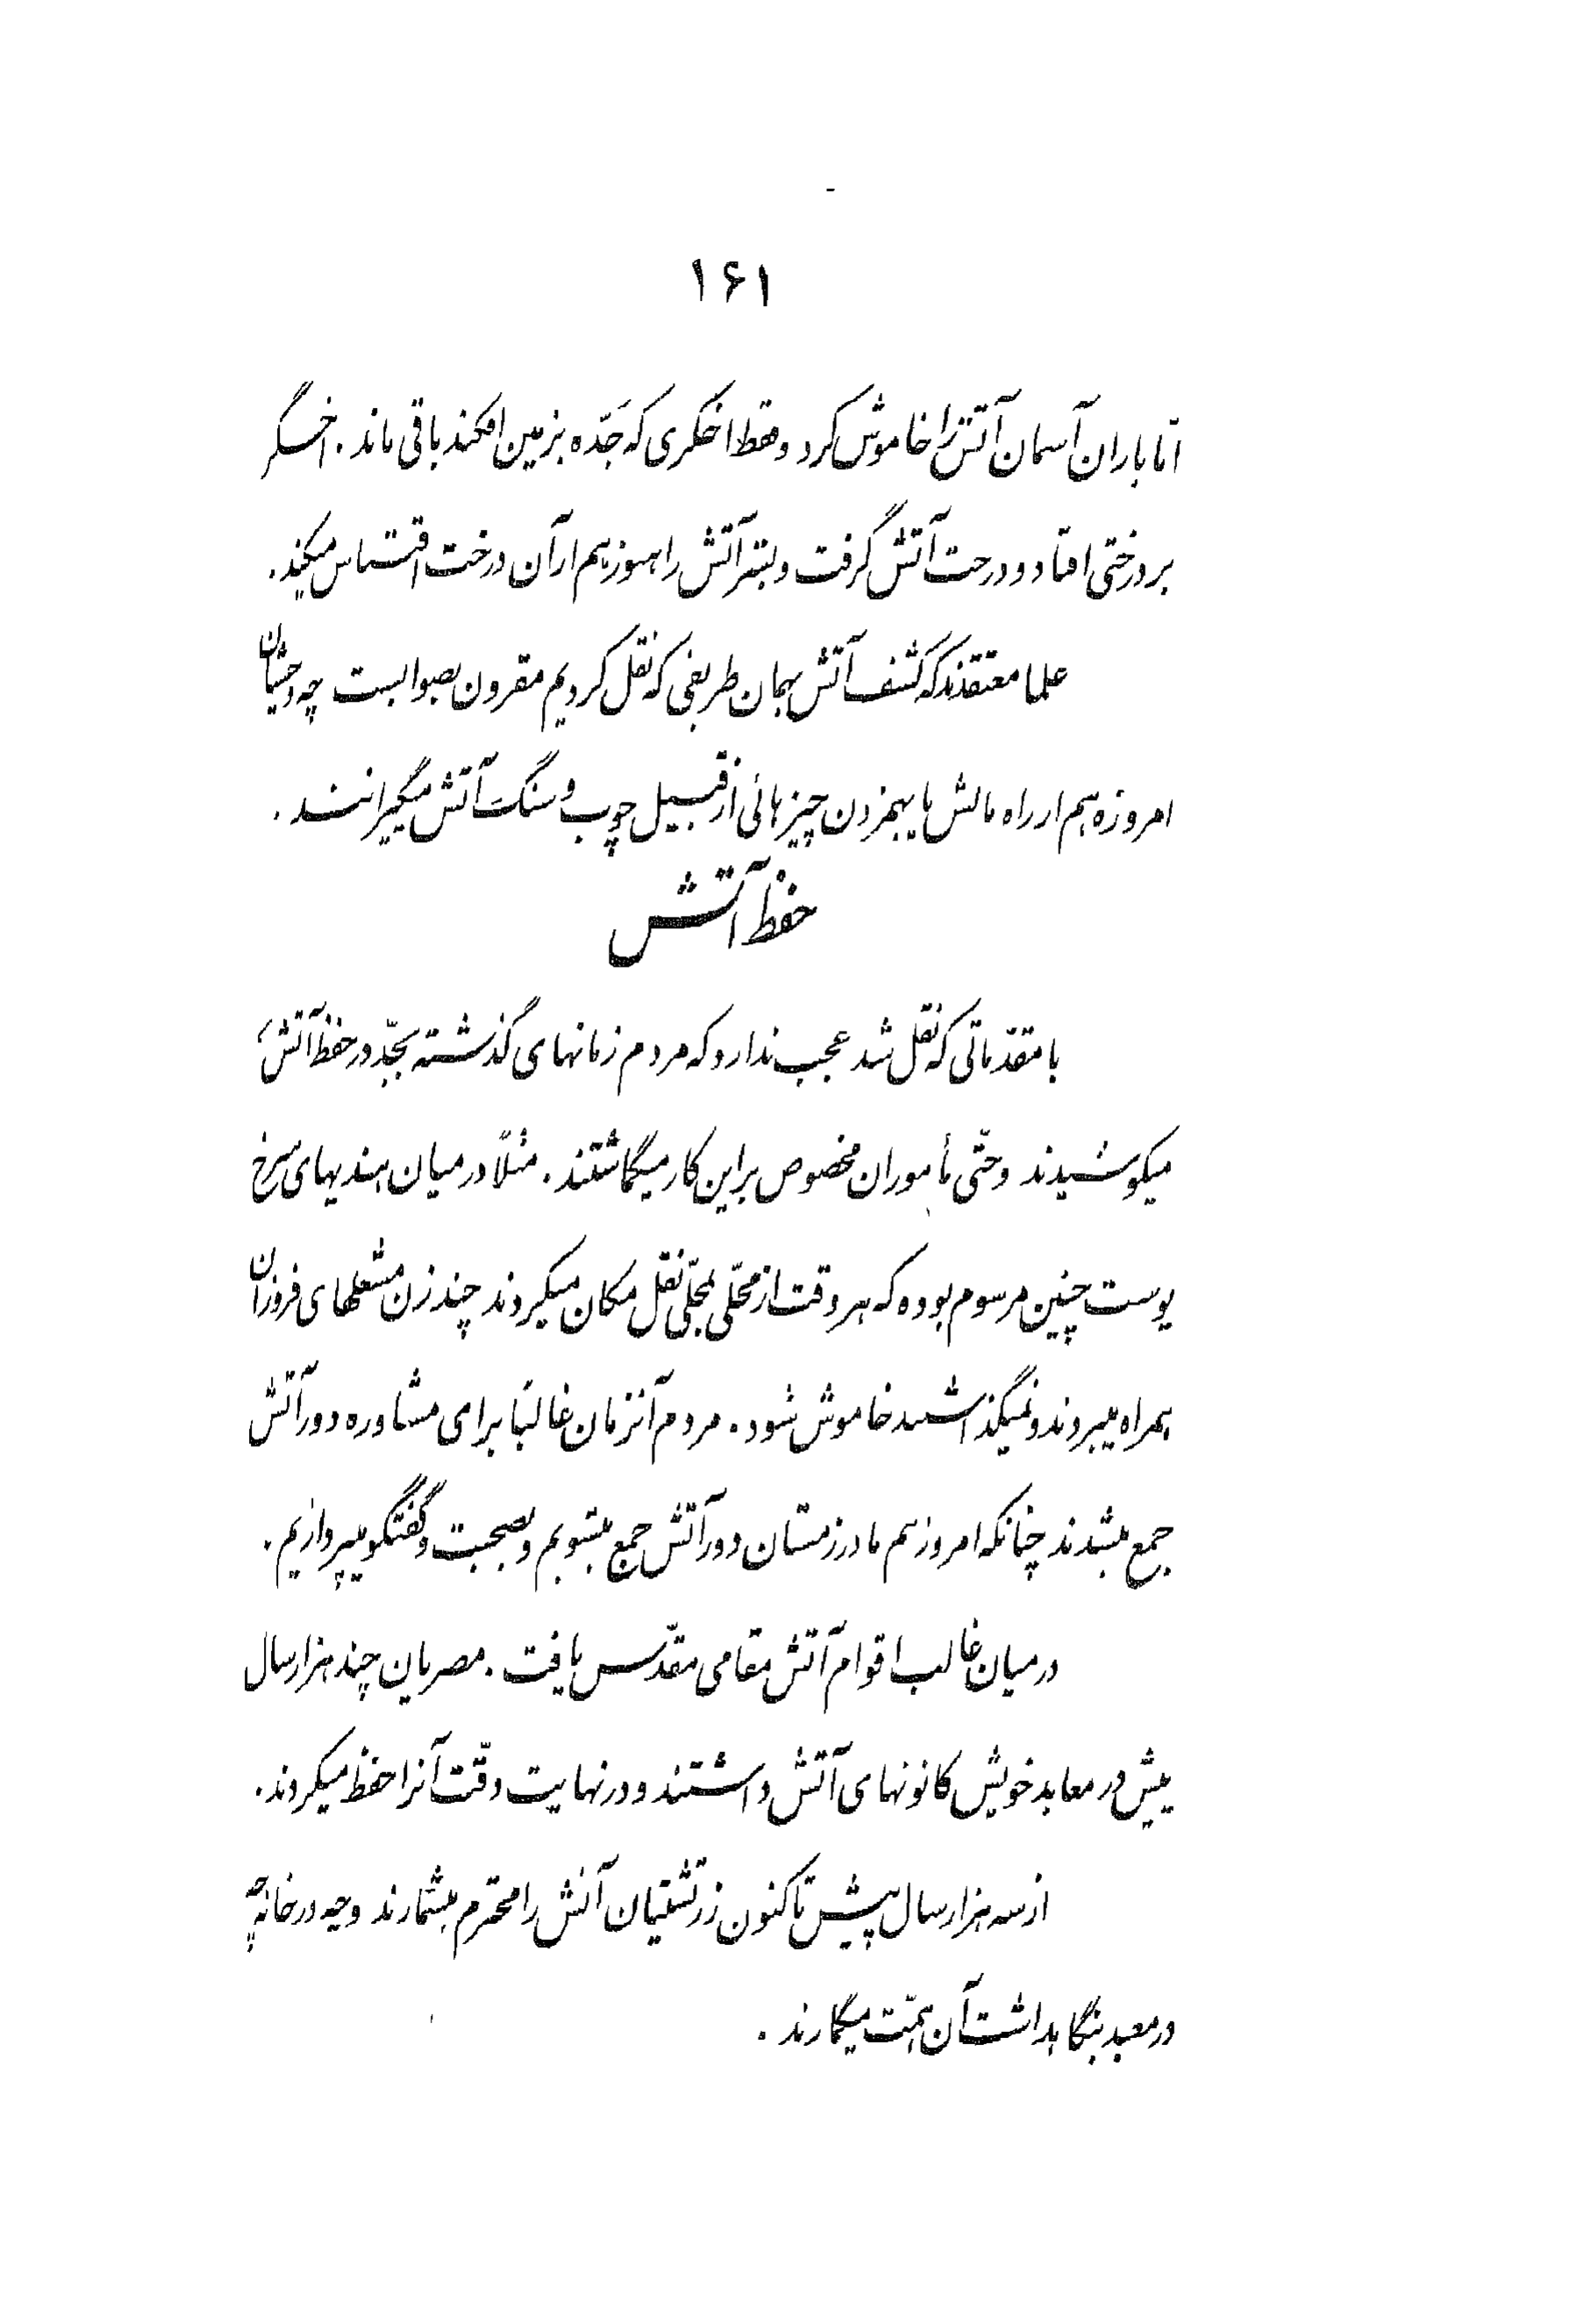 ۱۶۱
امّا باران آسمان آتش را خاموش کرد و فقط اخگری که جَدّه بزمین افکند باقی ماند . اخگر
بر درختی افتاد و درخت آتش گرفت و بشر آتش را هنوز هم از آن درخت اقتباس میکند .
علما معتقدند که کشف آتش بهمان طریقی که نقل کردیم مقرون بصوابست چه وحشیان
امروزه هم از راه مالش یا بهمزدن چیزهائی از قبیل چوب و سنگ آتش میگیرانند .
حفظ آتش
با مقدّماتی که نقل شد عجب ندارد که مردم زمانهای گذشته بجدّ در حفظ آتش
میکوشیدند و حتّی مأموران مخصوص بر این کار میگماشتند . مثلاً در میان هندیهای سرخ
پوست چنین مرسوم بوده که هر وقت از محلّی بمحلّی نقل مکان میکردند چند زن مشعلهای فروزان
همراه میبردند و نمیگذاشتند خاموش شود . مردم آنزمان غالباً برای مشاوره دور آتش
جمع میشدند چنانکه امروز هم ما در زمستان دور آتش جمع میشویم و بصحبت و گفتگو میپردازیم .
در میان غالب اقوام آتش مقامی مقدّس یافت . مصریان چند هزار سال
پیش در معابد خویش کانونهای آتش داشتند و در نهایت دقّت آنرا حفظ میکردند .
از سه هزار سال پیش تا کنون زرتشتیان آتش را محترم میشمارند و چه در خانه چه
در معبد بنگاهداشت آن همّت میگمارند .